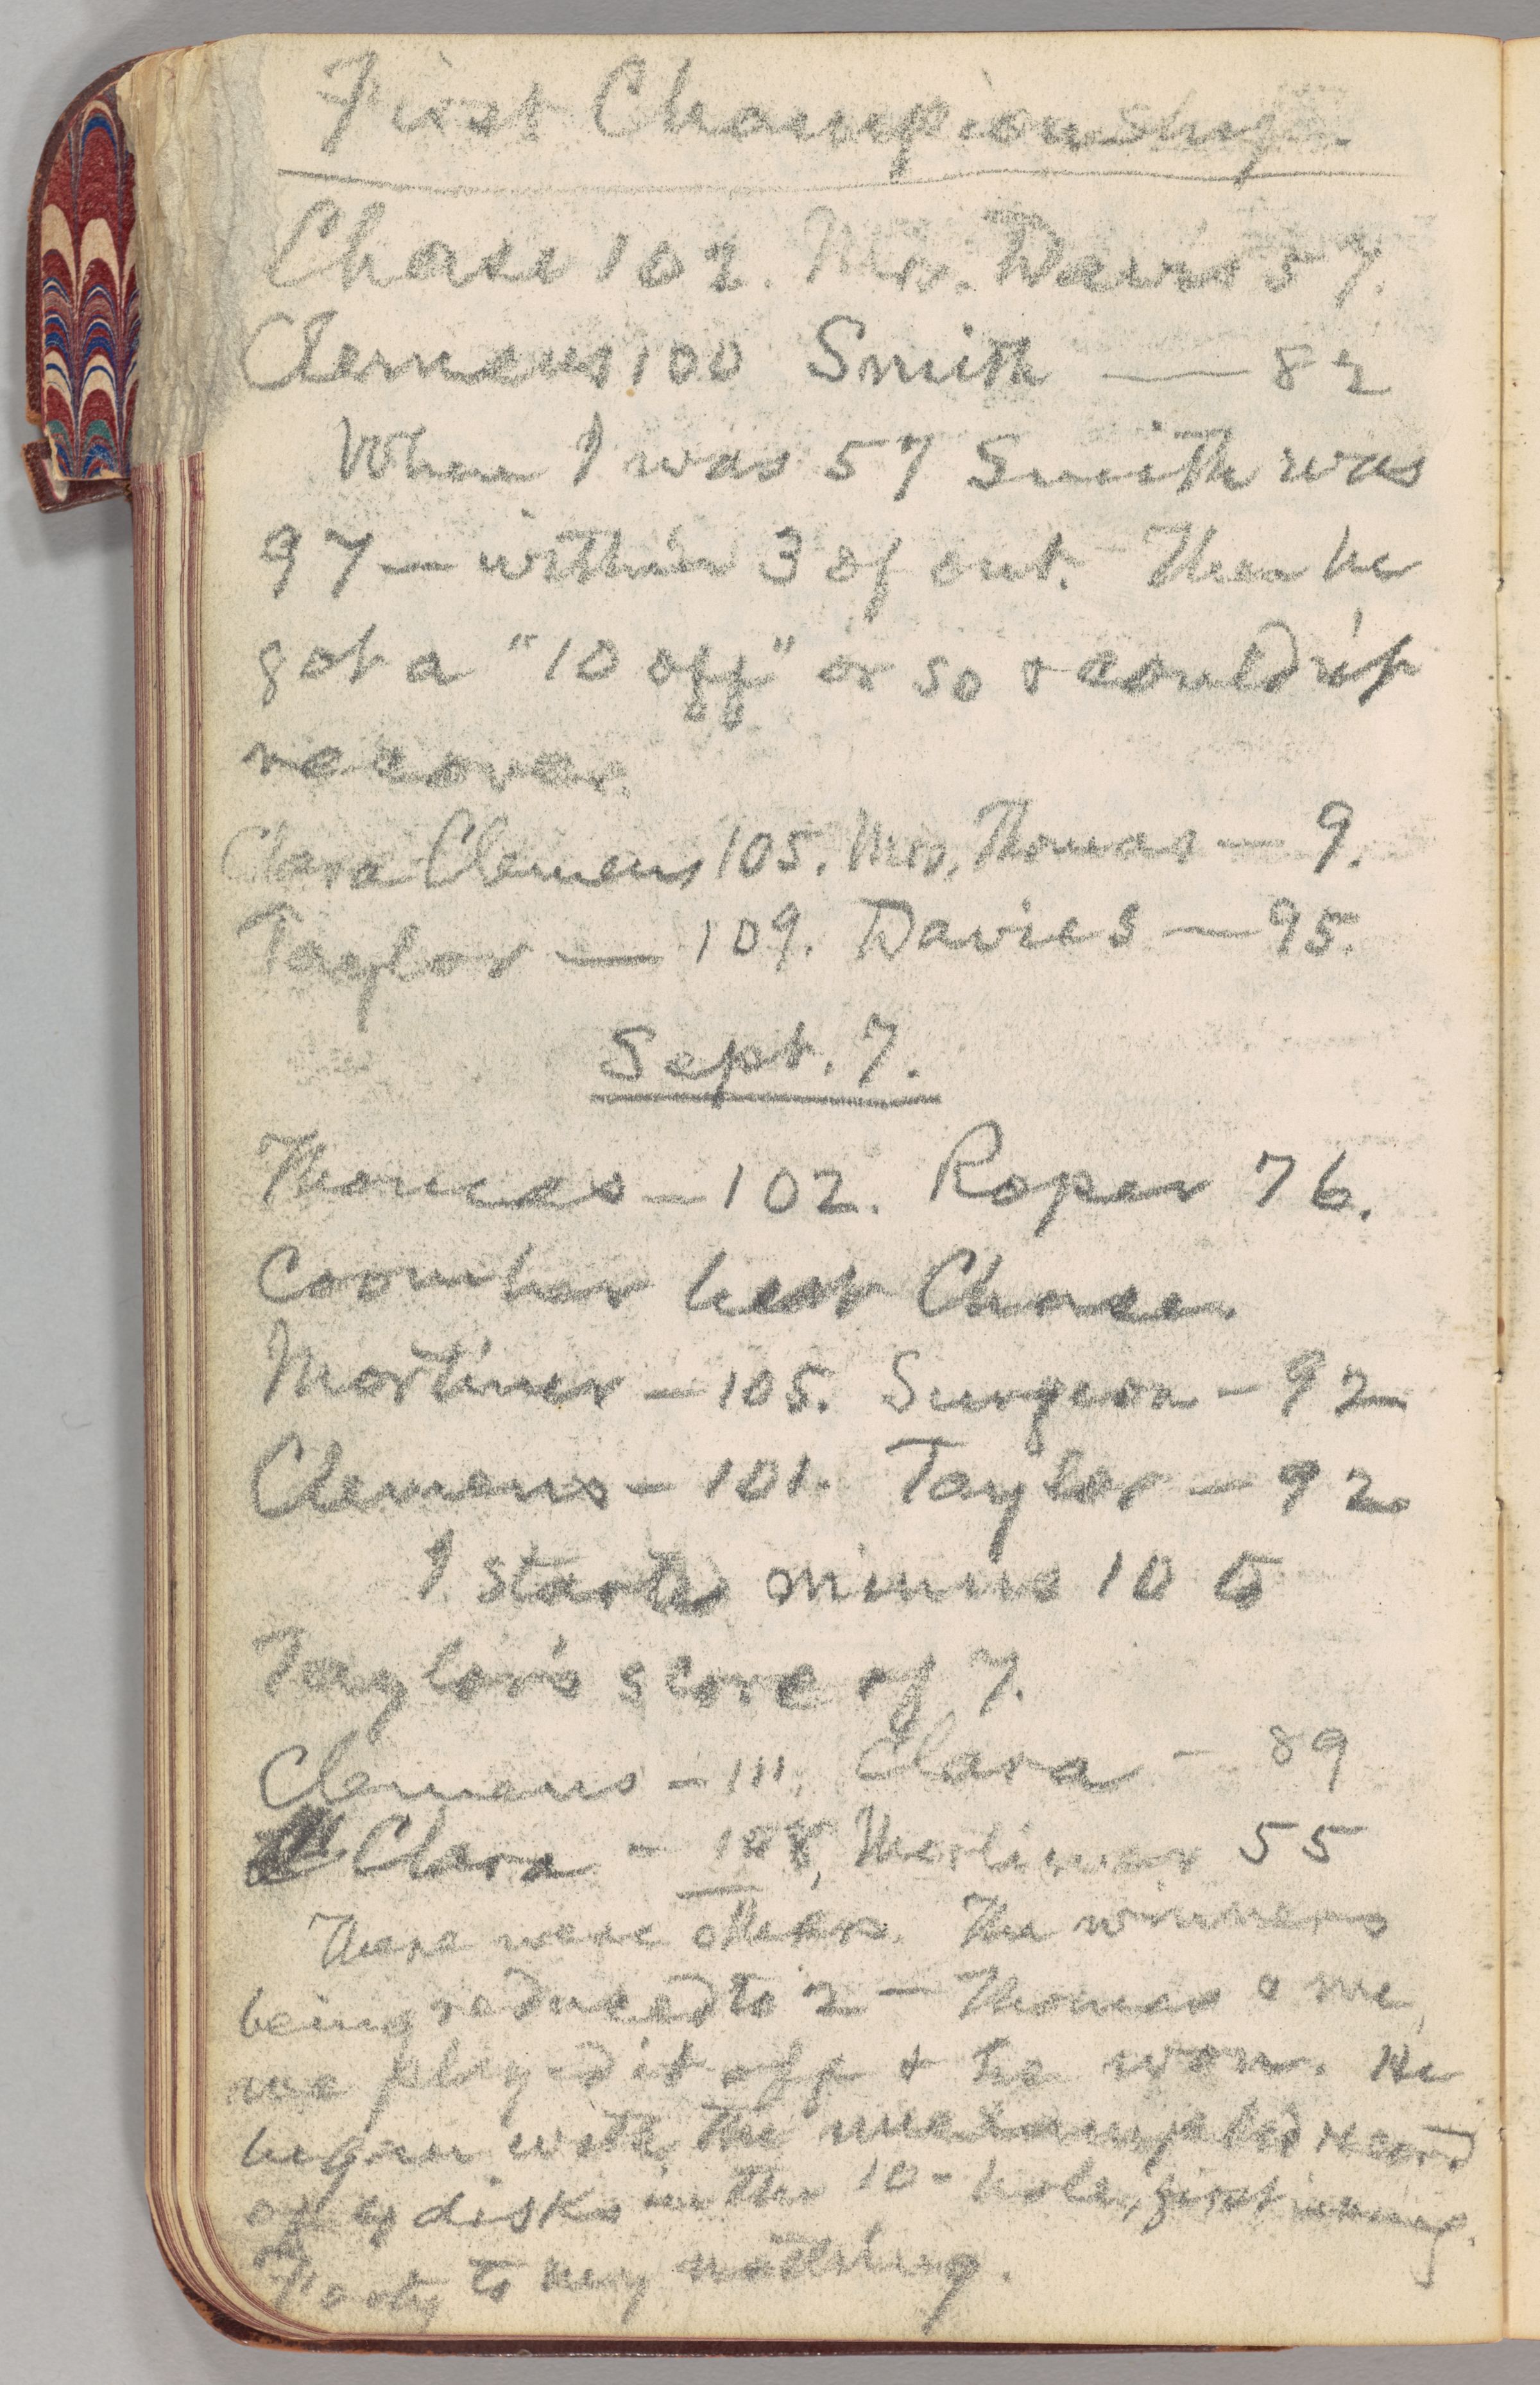 First Championship.
Chase 102. Mrs. Davis 57.
Clemens 100 Smith — 82
When I was 57 Smith was
97 — within 3 of out. Then he
got a "10 off" or so & couldn't
recover.
Clara Clemens 105. Mrs. Thomas — 9.
Taylor — 109. Davies — 95.
Sept. 7.
Thomas — 102. Roper 76.
Coomber beat Chase.
Mortimer — 105. Surgeon — 92
Clemens — 101. Taylor — 92
I started minus 10 to
Taylor's score of 7.
Clemens — 111. Clara — 89
Clara — 108, Mortimer 55
There were others. The winners
being reduced to 2 — Thomas & me,
we played it off & he won. He
began with the unexampled record
of 4 disks in the 10-hole, first inning.
Forty to my nothing.